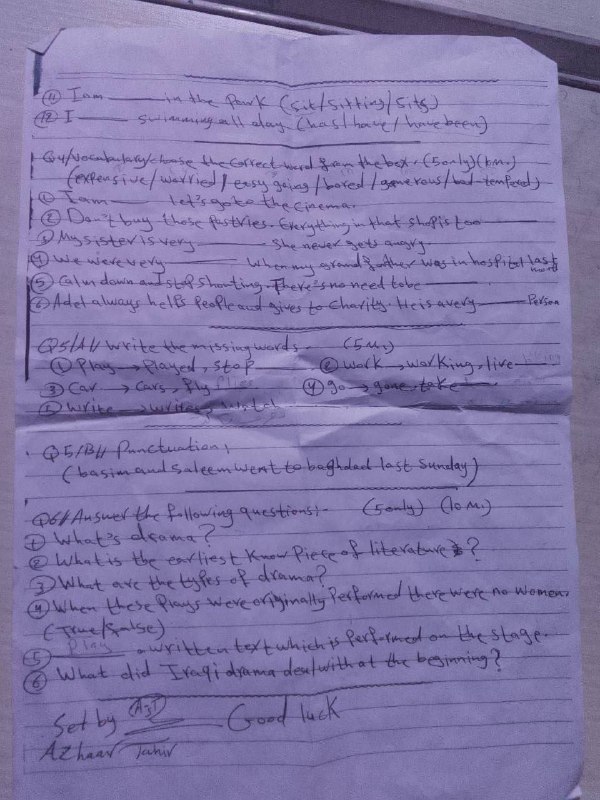 ⑪ I am —— in the park (sit/sitting/sits)
⑫ I —— swimming all day. (has/have/have been)
Q4/vocabulary/choose the correct word from the box. (5 only) (10 M.)
(expensive/worried/easy going/bored/generous/bad tempered)
① I am —— Let's go to the cinema.
② Don't buy those pastries. Everything in that shop is too ——
③ My sister is very —— She never gets angry
④ We were very —— when my grandfather was in hospital last
⑤ Calm down and stop shouting. There's no need to be ——
⑥ Adel always helps people and gives to charity. He is a very —— Person
Q5/A// Write the missing words. (5 M.)
① Play → Played, stop ② work → working, live
③ Car → Cars, fly ④ go → gone, take
⑤ write → writer,
Q5/B// Punctuation,
(basim and saleem went to baghdad last Sunday)
Q6// Answer the following questions:- (5 only) (10 M.)
① What's drama?
② What is the earliest know Piece of literature?
③ What are the types of drama?
④ When these Plays were originally Performed there were no women.
(True/false)
⑤ Play a written text which is performed on the stage.
⑥ What did Iraqi drama deal with at the beginning?
Set by Good luck
Azhaar Tahir